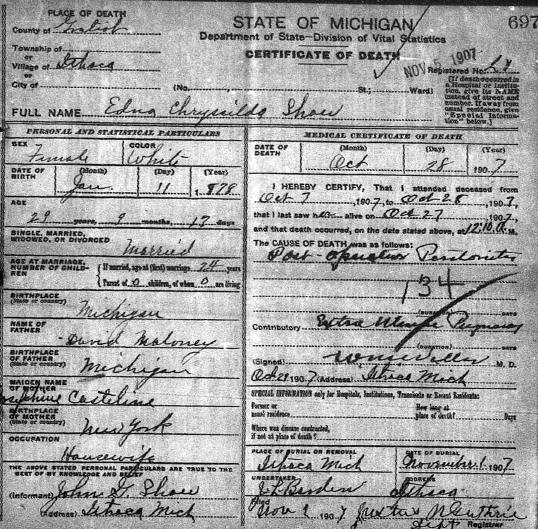 PLACE OF DEATH
County of Gratiot
Township of
or
Village of Ithaca
or
City of
STATE OF MICHIGAN
Department of State—Division of Vital Statistics
CERTIFICATE OF DEATH
697
NOV 5 1907
Registered No.
(No. St.; Ward)
(If death occurred in a Hospital or Institution, give its NAME instead of street and number. If away from usual residence, give "Special Information" below.)
FULL NAME Edna Chrysilda Shaw
PERSONAL AND STATISTICAL PARTICULARS
SEX Female
COLOR White
DATE OF BIRTH (Month) (Day) (Year)
Jan 11 1878
AGE
29 years, 9 months, 17 days
SINGLE, MARRIED, WIDOWED, OR DIVORCED
Married
AGE AT MARRIAGE, NUMBER OF CHILDREN
If married, age at (first) marriage 24 years
Parent of 0 children, of whom 0 are living
BIRTHPLACE (State or country)
Michigan
NAME OF FATHER
David Maloney
BIRTHPLACE OF FATHER (State or country)
Michigan
MAIDEN NAME OF MOTHER
Casteline
BIRTHPLACE OF MOTHER (State or country)
New York
OCCUPATION
Housewife
THE ABOVE STATED PERSONAL PARTICULARS ARE TRUE TO THE BEST OF MY KNOWLEDGE AND BELIEF
(Informant) John Shaw
(Address) Ithaca Mich
MEDICAL CERTIFICATE OF DEATH
DATE OF DEATH (Month) (Day) (Year)
Oct 28 1907
I HEREBY CERTIFY, That I attended deceased from
Oct 7 1907, to Oct 28, 1907,
that I last saw her alive on Oct 27 1907,
and that death occurred, on the date stated above, at 12:10 M.
The CAUSE OF DEATH was as follows:
Post-operative Peritonitis
134
(DURATION) DAYS
Contributory Extra Uterine Pregnancy
(DURATION) DAYS
(Signed) M. D.
Oct 29 1907 (Address) Ithaca Mich
SPECIAL INFORMATION only for Hospitals, Institutions, Transients or Recent Residents:
Former or usual residence
How long at place of death? Days
Where was disease contracted, if not at place of death?
PLACE OF BURIAL OR REMOVAL
Ithaca Mich
DATE OF BURIAL
November 1 1907
UNDERTAKER
Barden
ADDRESS
Ithaca
Filed
Nov 1907
Registrar